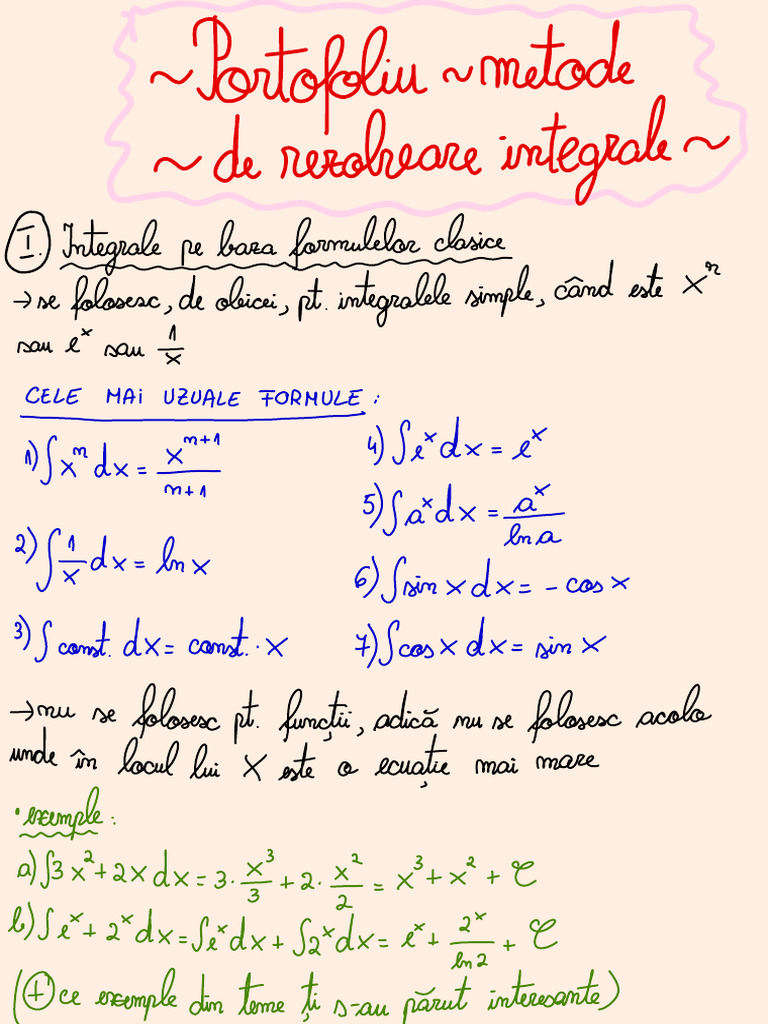 ~Portofoliu ~metode
~de rezolvare integrale~
I. Integrale pe baza formulelor clasice
→se folosesc, de obicei, pt. integralele simple, când este xⁿ
sau eˣ sau 1/x
CELE MAI UZUALE FORMULE:
1) ∫xⁿdx = xⁿ⁺¹/(n+1)
2) ∫1/x dx = ln x
3) ∫const. dx = const. · x
4) ∫eˣdx = eˣ
5) ∫aˣdx = aˣ/ln a
6) ∫sin x dx = - cos x
7) ∫cos x dx = sin x
→nu se folosesc pt. funcții, adică nu se folosesc acolo
unde în locul lui X este o ecuație mai mare
• exemple:
a) ∫3x²+2x dx = 3·x³/3 + 2·x²/2 = x³+x²+C
b) ∫eˣ+2ˣdx = ∫eˣdx + ∫2ˣdx = eˣ + 2ˣ/ln 2 + C
(+ ce exemple din teme ți s-au părut interesante)